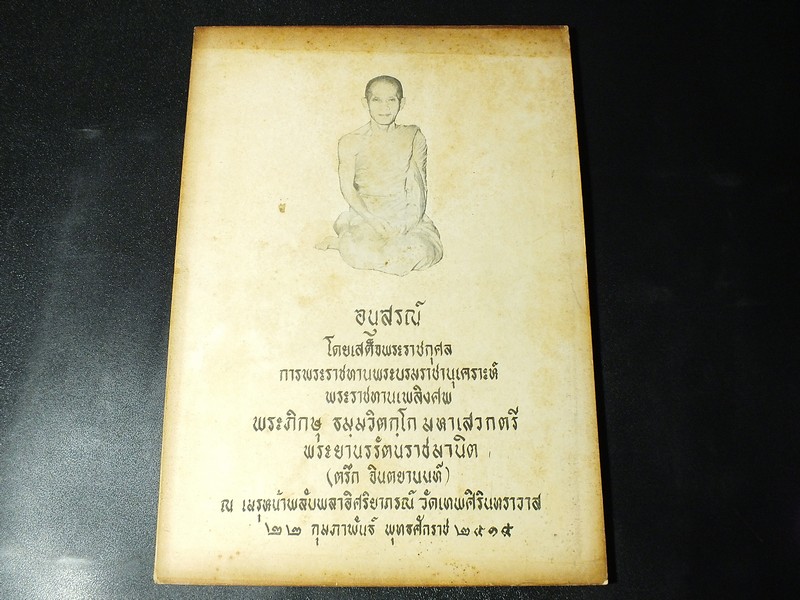 อนุสรณ์
โดยเสด็จพระราชกุศล
การพระราชทานพระบรมราชานุเคราะห์
พระราชทานเพลิงศพ
พระภิกษุ ธมฺมวิตกฺโก มหาเสวกตรี
พระยานรรัตนราชมานิต
(ตรึก จินตยานนท์)
ณ เมรุหน้าพลับพลาอิศริยาภรณ์ วัดเทพศิรินทราวาส
๒๒ กุมภาพันธ์ พุทธศักราช ๒๕๑๕